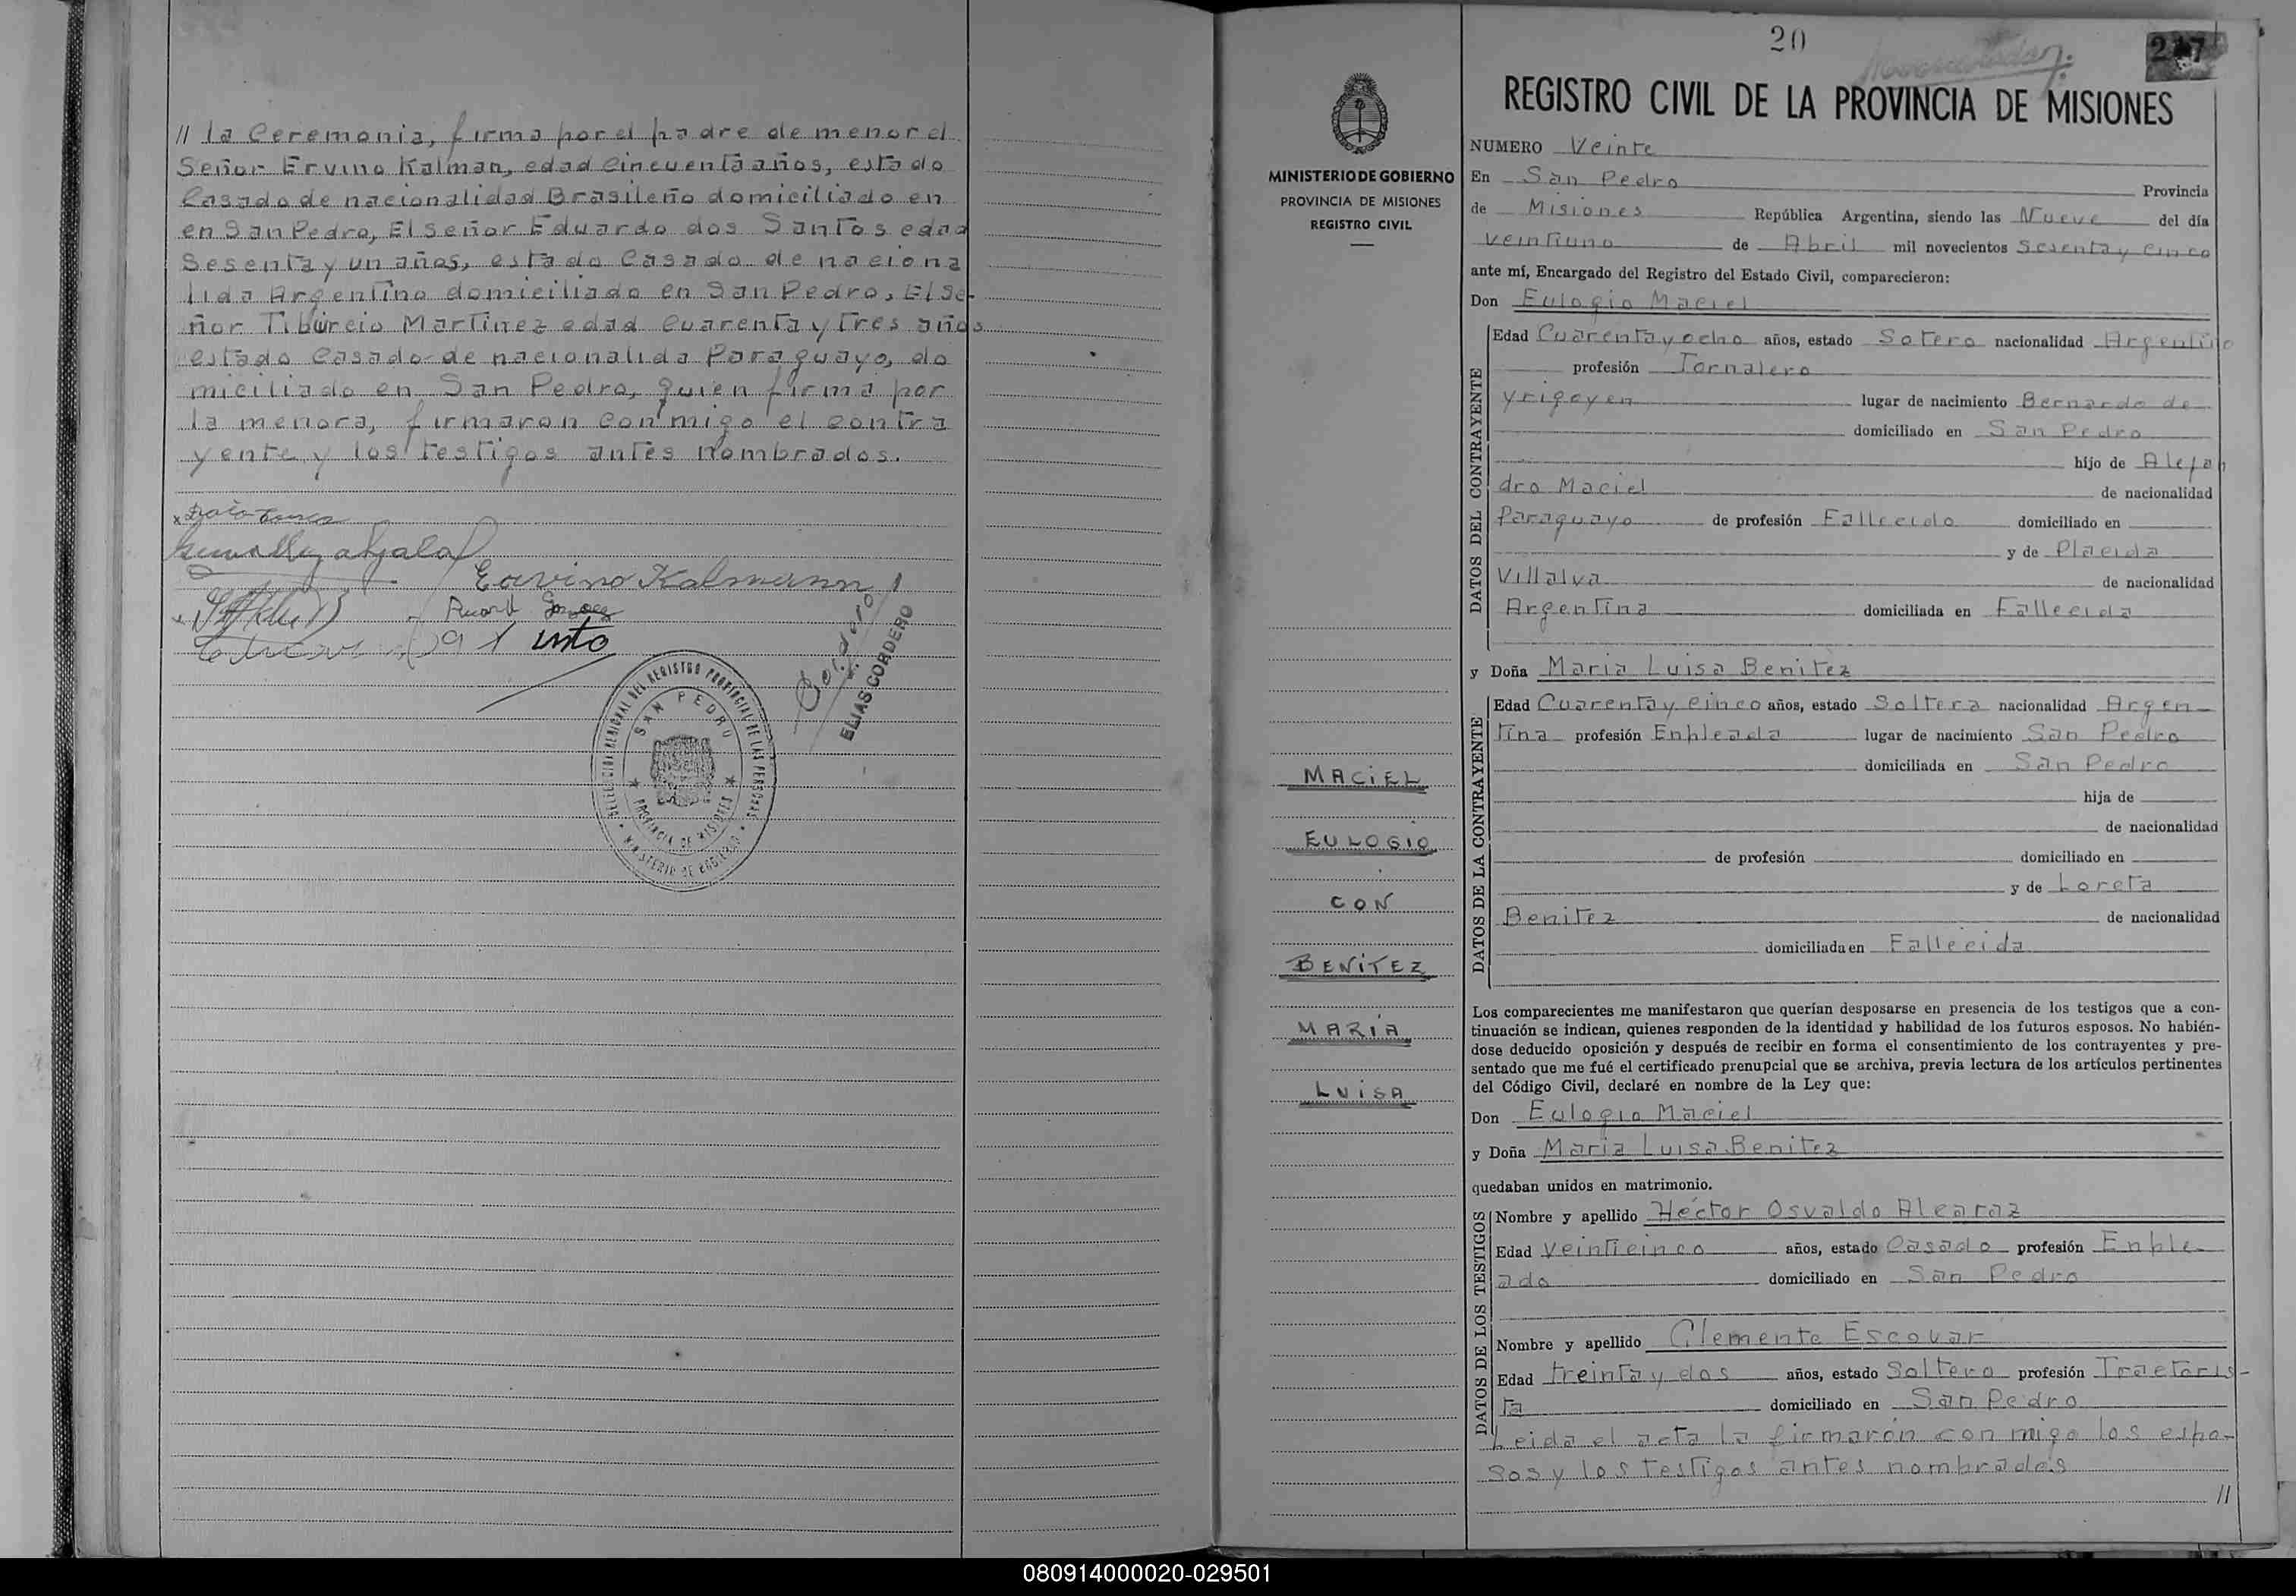 // la Ceremonia, firma por el padre de menor el
Señor Ervino Kalman, edad Cincuenta años, estado
Casado de nacionalidad Brasileño domiciliado en
en San Pedro, El señor Eduardo dos Santos edad
Sesenta y un años, estado Casado de naciona
lida Argentino domiciliado en San Pedro, El Se-
ñor Tiburcio Martinez edad Cuarenta y tres años
estado Casado de nacionalida Paraguayo, do
miciliado en San Pedro, quien firma por
la menora, firmaron conmigo el contra
yente y los testigos antes nombrados.
Ervino Kalmann
ELIAS CORDERO
DELEGACION REGIONAL DEL REGISTRO PROVINCIAL DE LAS PERSONAS
SAN PEDRO
PROVINCIA DE MISIONES
MINISTERIO DE GOBIERNO
20
REGISTRO CIVIL DE LA PROVINCIA DE MISIONES
MINISTERIO DE GOBIERNO
PROVINCIA DE MISIONES
REGISTRO CIVIL
MACIEL
EULOGIO
CON
BENITEZ
MARIA
LUISA
NUMERO Veinte
En San Pedro Provincia
de Misiones República Argentina, siendo las Nueve del día
Veintiuno de Abril mil novecientos Sesenta y Cinco
ante mí, Encargado del Registro del Estado Civil, comparecieron:
Don Eulogio Maciel
DATOS DEL CONTRAYENTE
Edad Cuarenta y ocho años, estado Sotero nacionalidad Argentino
profesión Jornalero
yrigoyen lugar de nacimiento Bernardo de
domiciliado en San Pedro
hijo de Alejan
dro Maciel de nacionalidad
Paraguayo de profesión Fallecido domiciliado en
y de Placida
Villalva de nacionalidad
Argentina domiciliada en Fallecida
y Doña Maria Luisa Benitez
DATOS DE LA CONTRAYENTE
Edad Cuarenta y Cinco años, estado Soltera nacionalidad Argen-
tina profesión Enpleada lugar de nacimiento San Pedro
domiciliada en San Pedro
hija de
de nacionalidad
de profesión domiciliado en
y de Loreta
Benitez de nacionalidad
domiciliada en Fallecida
Los comparecientes me manifestaron que querían desposarse en presencia de los testigos que a con-
tinuación se indican, quienes responden de la identidad y habilidad de los futuros esposos. No habién-
dose deducido oposición y después de recibir en forma el consentimiento de los contrayentes y pre-
sentado que me fué el certificado prenupcial que se archiva, previa lectura de los artículos pertinentes
del Código Civil, declaré en nombre de la Ley que:
Don Eulogio Maciel
y Doña Maria Luisa Benitez
quedaban unidos en matrimonio.
DATOS DE LOS TESTIGOS
Nombre y apellido Héctor Osvaldo Alcaraz
Edad Veinticinco años, estado Casado profesión Enple-
ado domiciliado en San Pedro
Nombre y apellido Clemente Escovar
Edad treinta y dos años, estado Soltero profesión Tractoris-
ta domiciliado en San Pedro
Leida el acta la firmarón conmigo los espo-
sos y los testigos antes nombrados
//
080914000020-029501